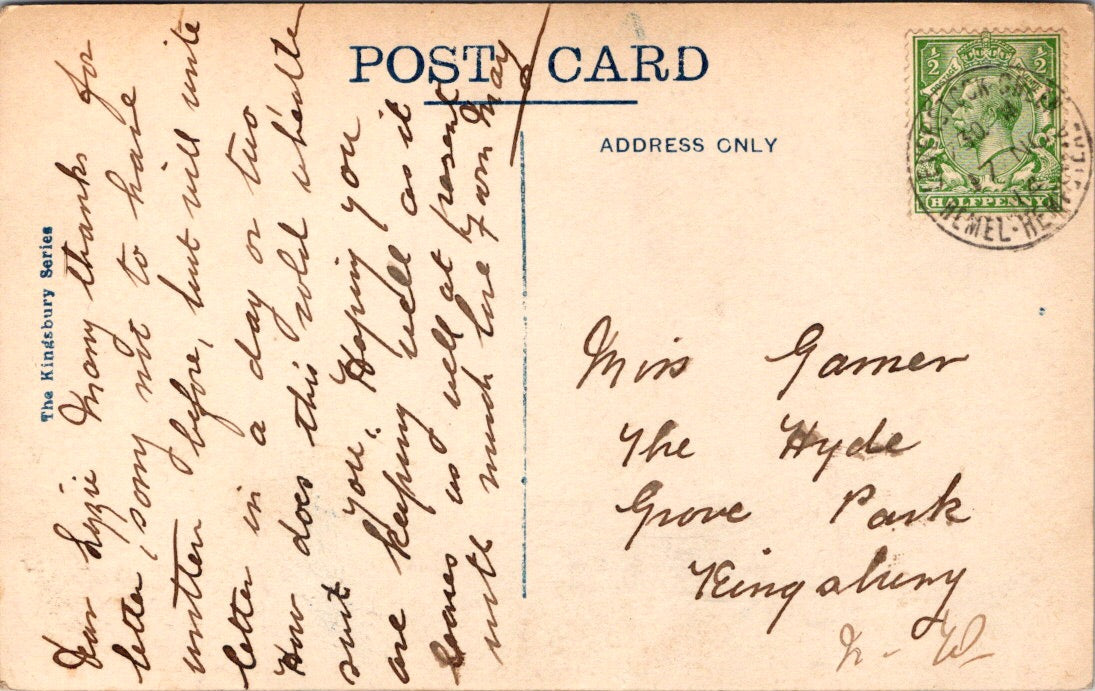 POST CARD
ADDRESS ONLY
The Kingsbury Series
½ ½
HALFPENNY
HEMEL-HEMPSTED
Dear Lizzie Many thanks for
letter, sorry not to have
written before, but will write
letter in a day or two
How does this cold weather
suit you. Hoping you
are keeping well as it
leaves us well at present
with much love from May
Miss Garner
The Hyde
Grove Park
Kingsbury
N. W.